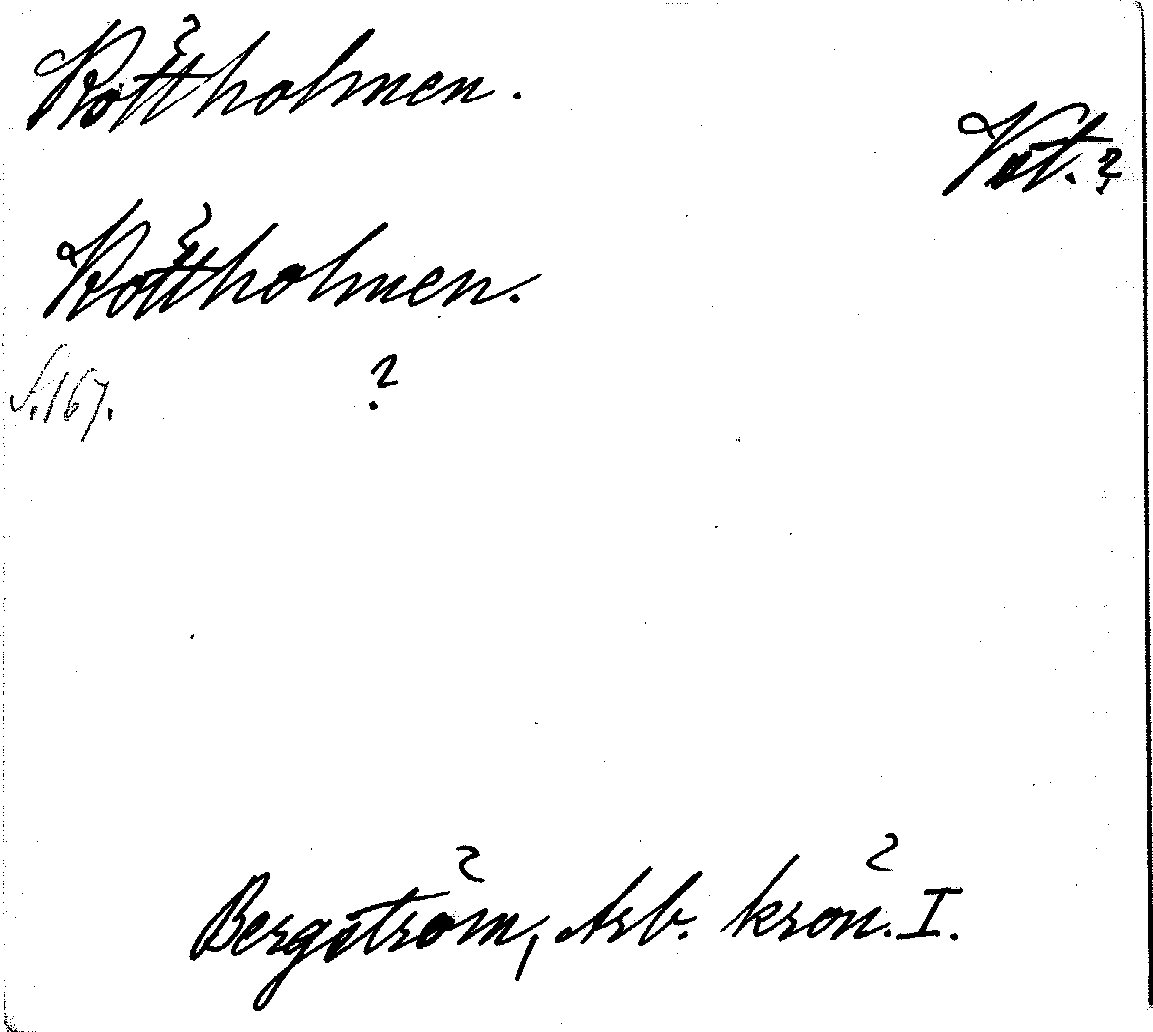 Röttholmen.
Vst.?
Röttholmen.
S. 167.
?
Bergström, Arb. krön. I.